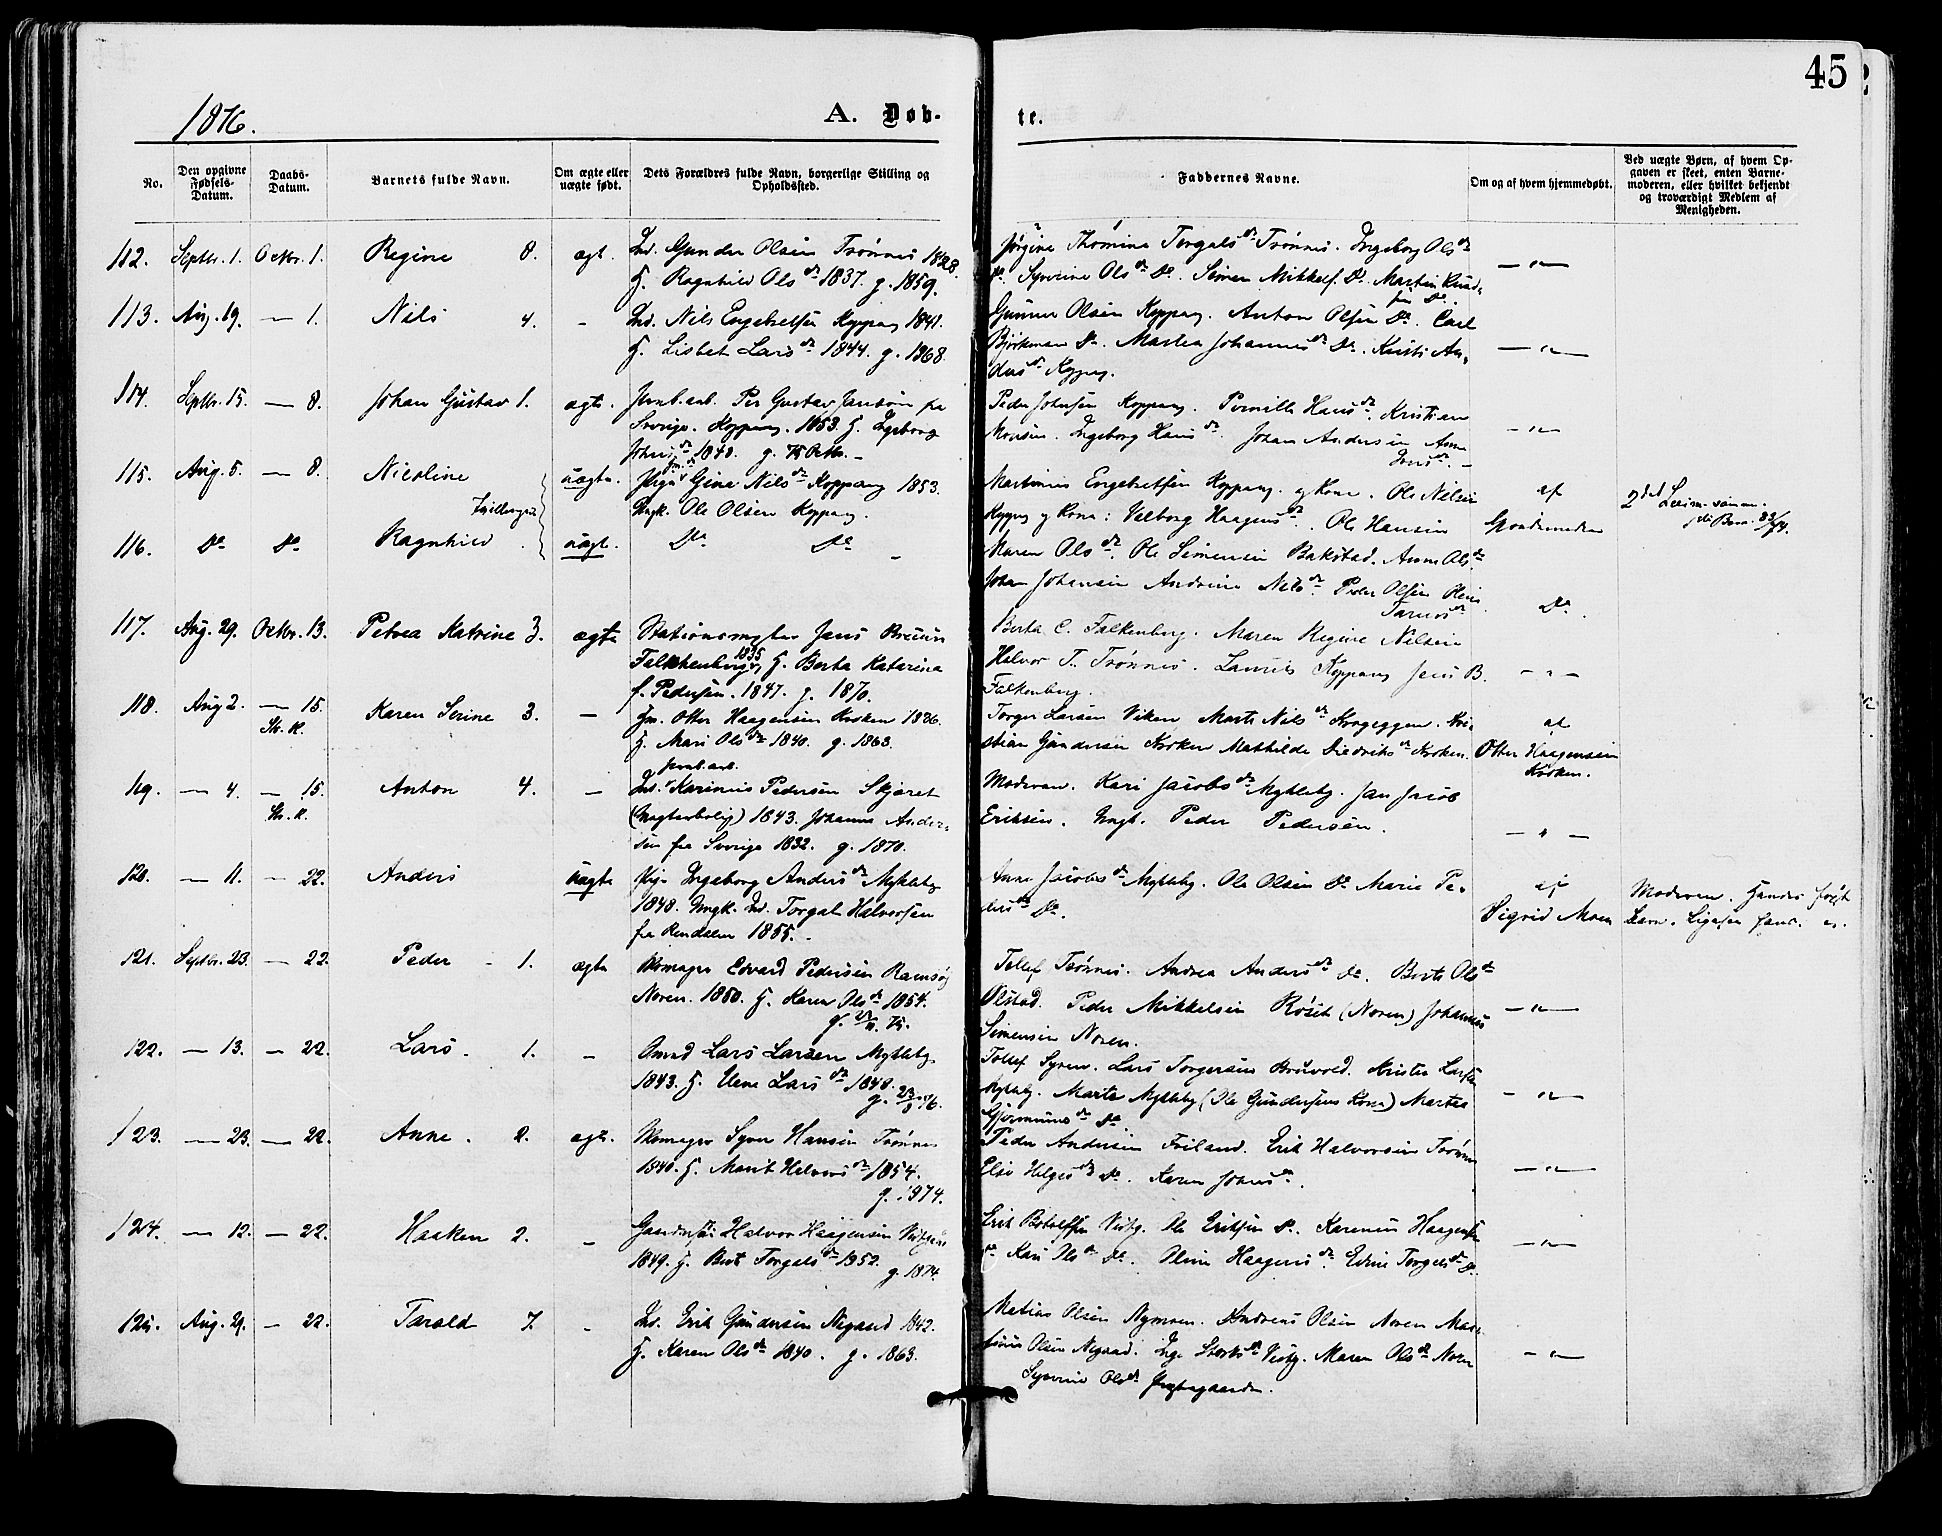 45
1876.
A. Døb-
te.
No.
Den opgivne Fødsels-Datum.
Daabs-Datum.
Barnets fulde Navn.
Om ægte eller uægte født.
Dets Forældres fulde Navn, borgerlige Stilling og Opholdssted.
Faddernes Navne.
Om og af hvem hjemmedøbt.
Ved uægte Børn, af hvem Opgaven er skeet, enten Barnemoderen, eller hvilket bekjendt og troværdigt Medlem af Menigheden.
112. Septbr. 1. Octbr. 1. Regine 8. ægt. Ind. Gunder Olsen Trønnes 1828.
G. Ragnhild Olsdr 1837. g. 1859.
Jørgine Thomina Torgalsdr Trønnes. Ingeborg Olsdr
Do. Syverine Olsdr Do. Simen Mikkels. Do. Martin Knud-
sen Do.
113. Aug. 19. — 1. Nils 4. - Ind. Nils Engebretsen Koppang 1841.
G. Lisbet Larsdr 1844. g. 1868.
Gunner Olsen Koppang. Anton Olsen Do. Carl
Bjørkman Do. Martea Johannesdr Do. Kirsti An-
dersdr Koppang.
114. Septbr. 15. — 8. Johan Gustav 1. ægte. Jernb.arb. Per Gustav Janson fra
Sverige. Koppang. 1853. G. Ingeborg
Johnsdr 1848. g. 75 Octbr. -
Peder Johnsen Koppang. Pernille Hansdr. Kristian
Monsen. Ingeborg Hansdr. Johan Andersen Anne
Jensdr. -
115. Aug. 5. — 8. Nicoline uægte. Pige Gina Nilsdr Koppang 1853.
Tvillinger
Ungk. Ole Olsen Koppang.
Martinus Engebretsen Koppang. og Kone. Ole Nilsen
Koppang og Kone: Valborg Haagensdr. Ole Hansen
af
Gjordemoderen
2det Leierm. samm.
116. Do Do Ragnhild uægt. Do Do -
Maren Olsdr. Ole Simensen Bakstad. Anne Olsdr
Johan Johansen Andrine Nilsdr. Peder Olsen
Do.
117. Aug. 29. Octbr. 13. Petrea Katrine 3. ægte Stationsmester Jens Bruun
Falkenberg 1835 G. Berta Katarina
f. Pedersen. 1847. g. 1870.
Berta C. Falkenberg. Maren Regine Nilsen
Halvor T. Trønnes. Laurits Koppang Jens B.
Falkenberg.
118. Aug 2. — 15. Karen Serine 3. — Gm. Otter Haagensen Kroken 1836
St. K.
G. Mari Olsdr 1840. g. 1863.
Torger Larsen Viken Marte Nilsdr Krogeggen. Kri-
stian Gundersen Kroken Mathilde Diedriksdr Kroken.
af
Otter Haagensen
Kroken.
119. — 4. — 15. Anton 4. — Ind. Karinus Pedersen Skjæret
St. K.
jernb.arb.
(Vogterbolig) 1843. Johanna Ander-
sen fra Sverige 1832. g. 1870.
Moderen. Kari Jacobsdr Mykleby. Jan Jacob
Eriksen. Ungk. Peder Pedersen.
120. — 11. — 22. Anders uægte Pige Ingeborg Andersdr Mykleby
1848. Ungk. Ind. Torgal Halvorsen
fra Rendalen 1855. -
Anne Jacobsdr Mykleby. Ole Olsen Do. Marie Pe-
dersdr Do.
af
Sigrid Moen
Moderen. Hendes første
121. Septbr. 23. — 22. Peder - 1. ægte Skomager Edvard Pedersen Ramsøy
Noren. 1850. G. Karen Olsdr 1854.
Tollef Trønnes. Andrea Andersdr Do. Berte Olsdr
Olstad. Peder Mikkelsen Røset (Noren) Johannes
Simensen Noren.
122. — 13. — 22. Lars. 1. - Lars Larsen Mykleby
1843. G. Uene Larsdr 1848.
Tollef Syren. Lars Torgersen Bruvold. Krister Larsen
Mykleby. Marte Mykleby (Ole Gundersens Kone) Martea
Gjermundsdr Do
123. — 23. — 22. Anne. 2. ægte. Skomager Syver Hansen Trønnes
1840. G. Marit Halvorsdr 1854.
g. 1874.
Peder Andersen Friland. Erik Halvorsen Trønnes
Else Helgesdr Do. Karen Johnsdr.
124. — 12. — 22. Haaken 2. - Halvor Haagensen
1849. G. Berte Torgalsdr 1852.
g. 1874.
Erik Botolfsen Vestg. Ole Eriksen Do. Karenus Haagensen
Do. Kari Olsdr Do. Oline Haagensdr. Edine Torgalsdr Do.
125. Aug. 29. — 22. Tarald 7. - Ind. Erik Gundersen Negaard 1842.
G. Karen Olsdr 1840. g. 1863.
Matias Olsen Nymoen. Andreas Olsen Noren Mar-
tinus Olsen Negaard. Inge Vestg. Maren Olsdr Noren
Syverine Olsdr